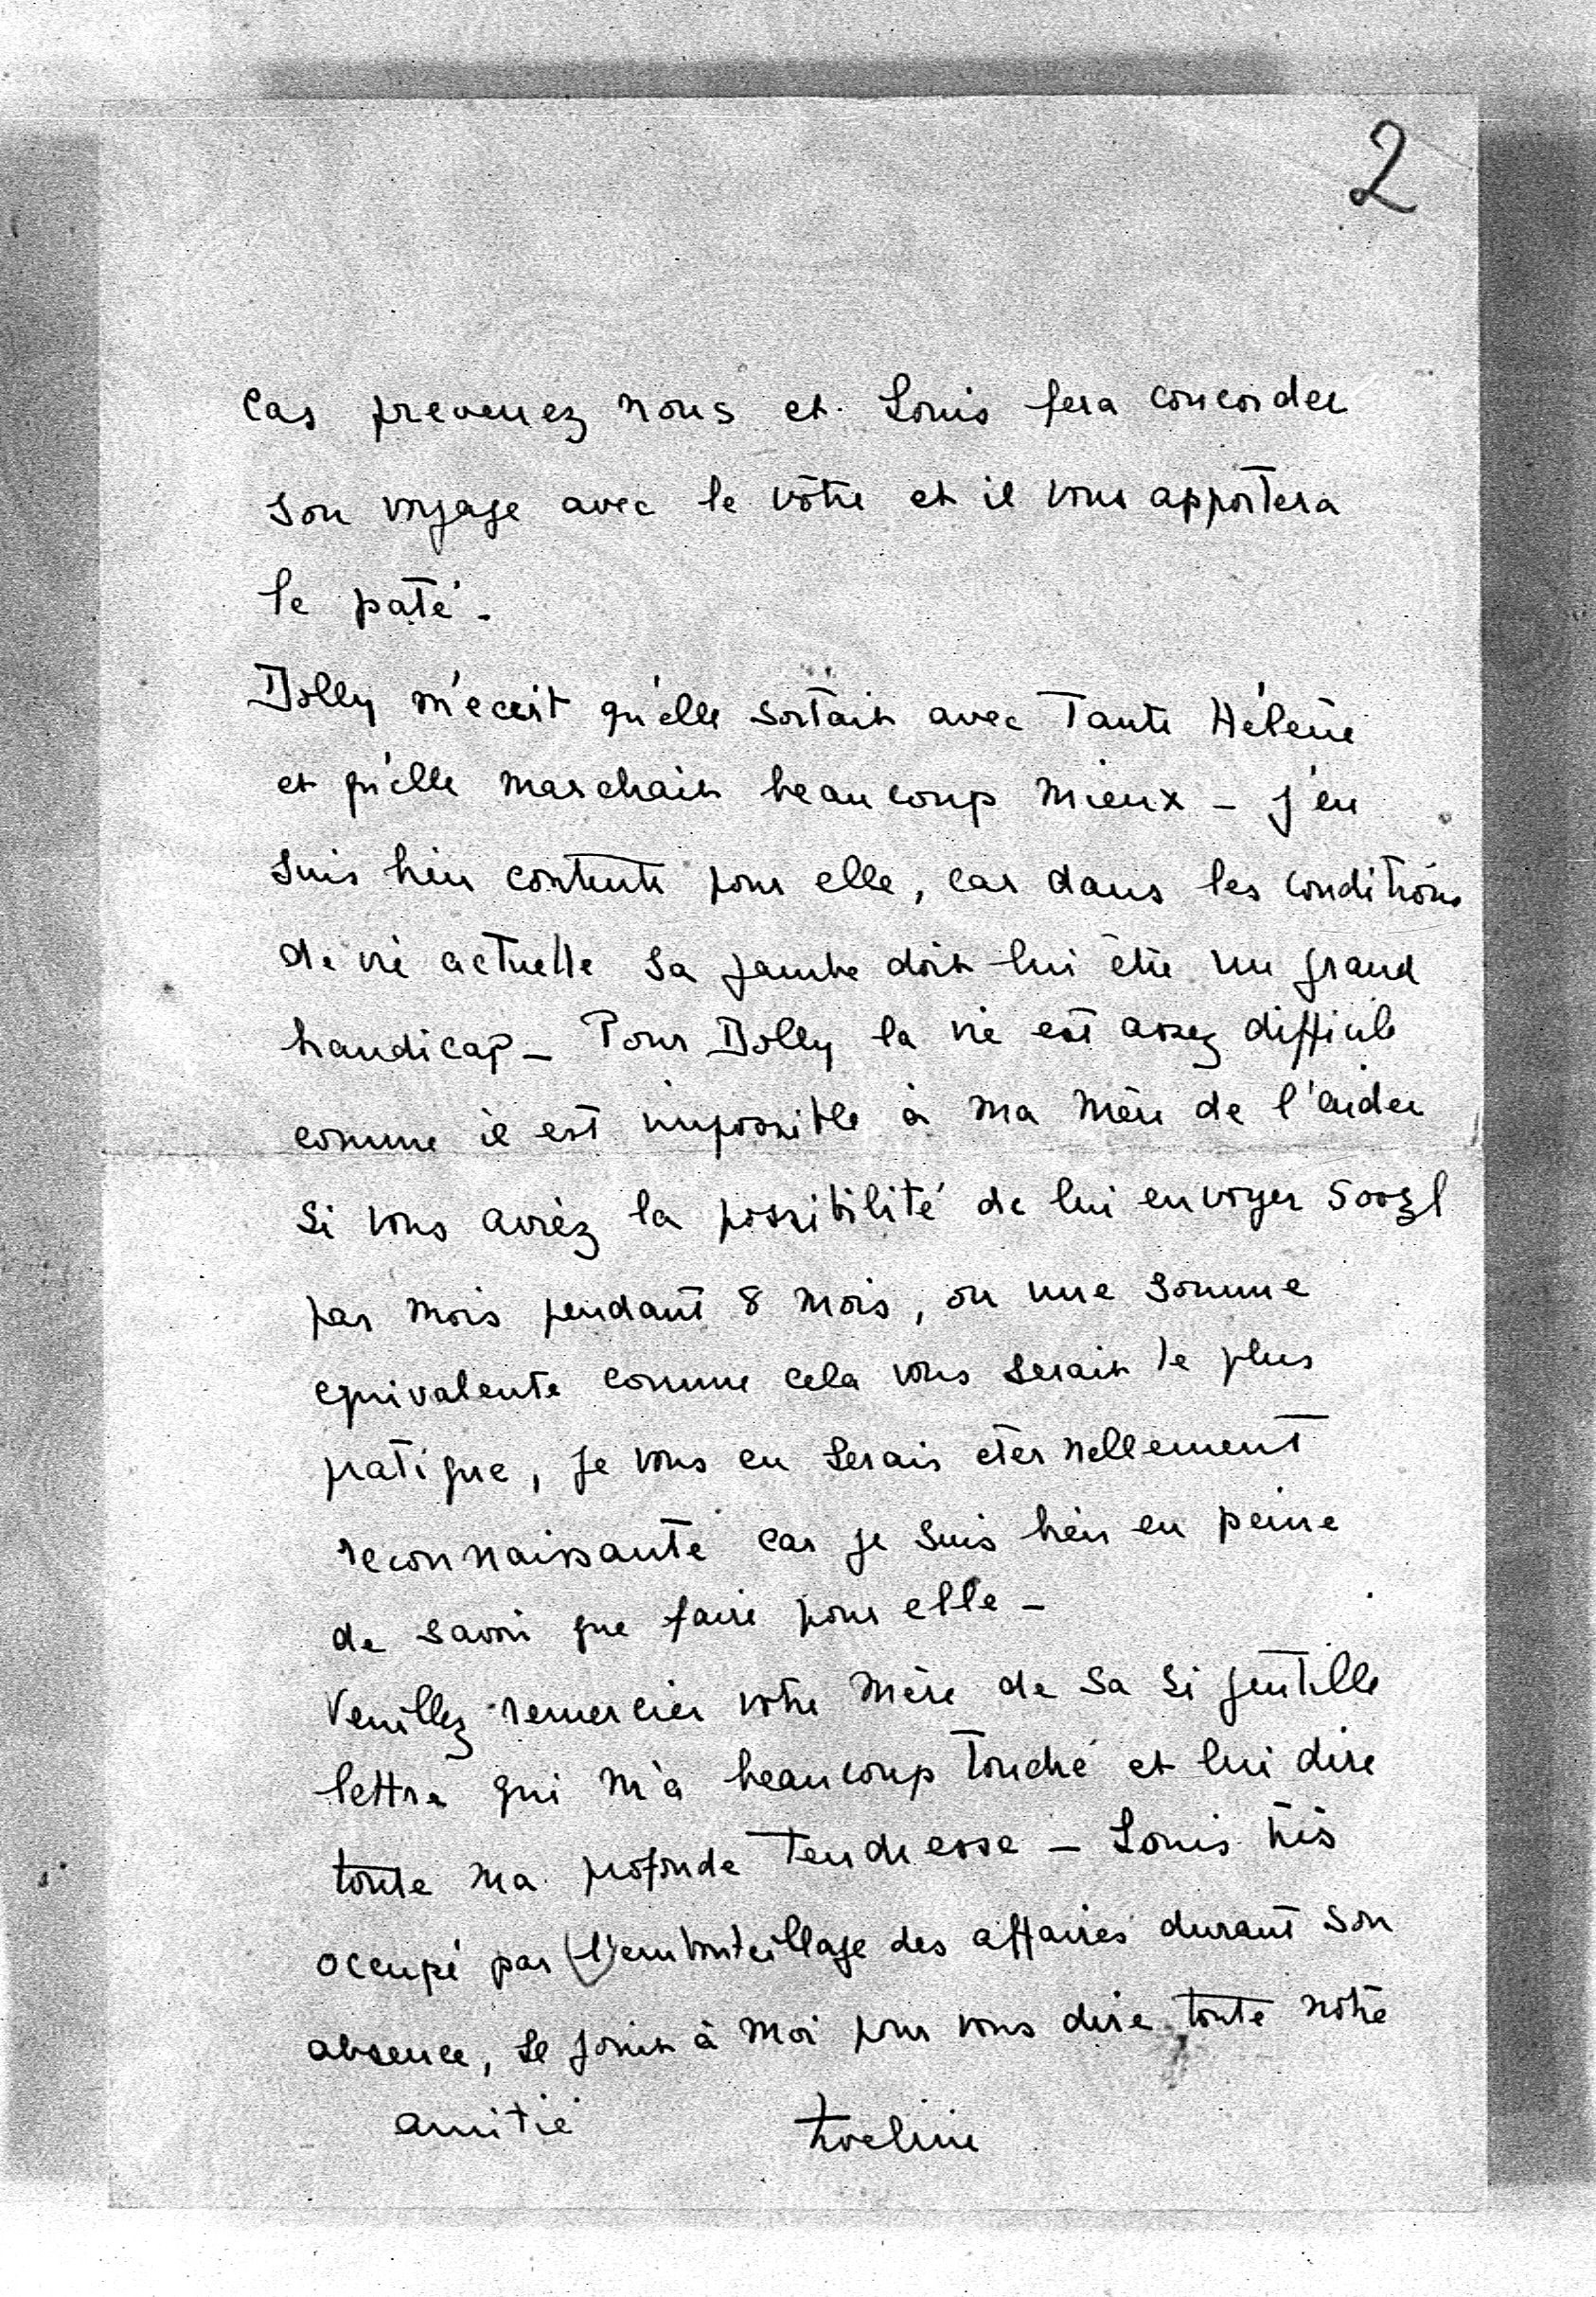 2
cas prevenez nous et Louis fera concorder
son voyage avec le vôtre et il vous apportera
le paté -
Dolly m'écrit qu'elle sortait avec Tante Hélène
et qu'elle marchait beaucoup mieux - j'en
suis bien contente pour elle, car dans les conditions
de vie actuelle sa jambe doit lui être un grand
handicap - Pour Dolly la vie est assez difficile
comme il est impossible à ma mère de l'aider
si vous aviez la possibilité de lui envoyer 500zl
par mois pendant 8 mois, ou une somme
equivalente comme cela vous serait le plus
pratique, je vous en serais eternellement
reconnaissante car je suis bien en peine
de savoir que faire pour elle -
Veuillez remercier votre mère de sa si gentille
lettre qui m'a beaucoup touché et lui dire
toute ma profonde tendresse - Louis très
occupé par l'embouteillage des affaires durant son
absence, se joint à moi pour vous dire toute notre
amitié